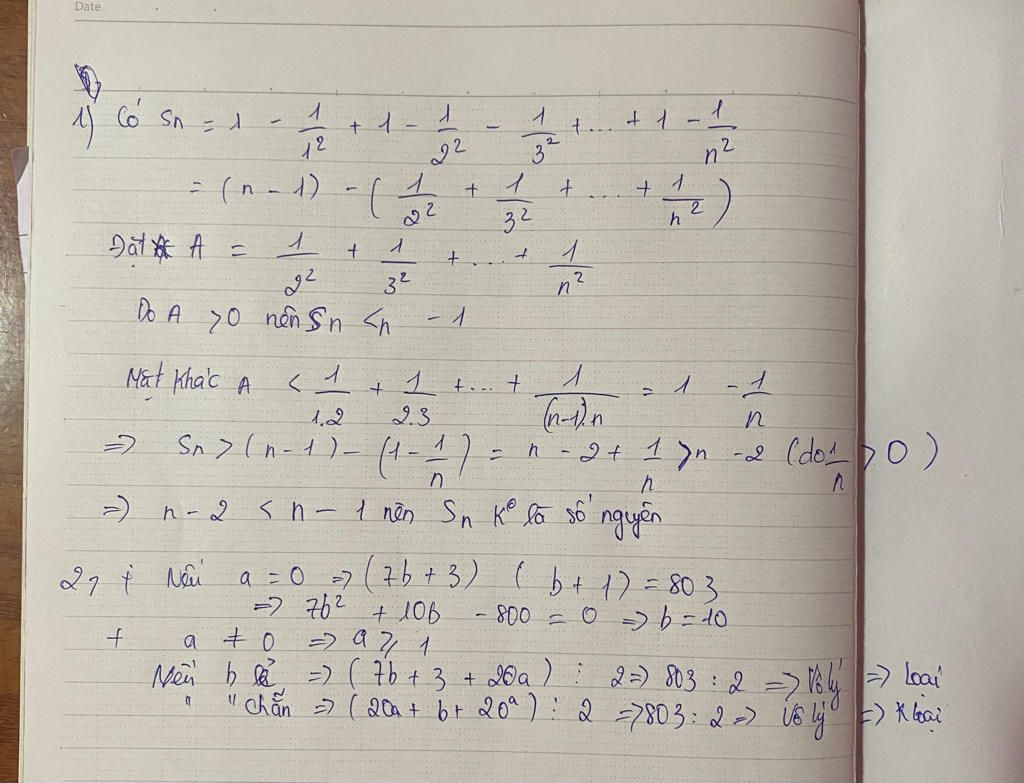 Date
1) Có Sn = 1 - 1/1² + 1 - 1/2² - 1/3² + ... + 1 - 1/n²
= (n - 1) - (1/2² + 1/3² + ... + 1/n²)
Đặt A = 1/2² + 1/3² + ... + 1/n²
Do A > 0 nên Sn < n - 1
Mặt khác A < 1/1.2 + 1/2.3 + ... + 1/(n-1).n = 1 - 1/n
=> Sn > (n - 1) - (1 - 1/n) = n - 2 + 1/n > n - 2 (do 1/n > 0)
=> n - 2 < n - 1 nên Sn K° là số nguyên
2, + Nếu a = 0 => (7b + 3) (b + 1) = 803
=> 7b² + 10b - 800 = 0 => b = 10
+ a ≠ 0 => a ⩾ 1
Nếu b lẻ => (7b + 3 + 20a) ⋮ 2 => 803 : 2 => Vô lý => Loại
" " chẵn => (20a + b + 20ᵃ) ⋮ 2 => 803 : 2 => Vô lý => loại